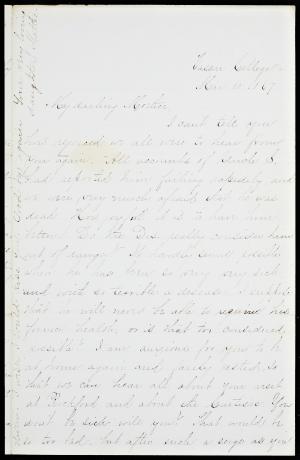 Vassar College
Mar. 10. 1867
My darling Mother,
I can't tell you
how rejoiced we all were to hear from
you again. All accounts of Uncle S.
had reported him failing rapidly and
we were very much afraid that he was
dead. How joyful it is to have him
better! Do the Drs. really consider him
out of danger? It hardly seems possible
when he has been so very very sick
and with so terrible a disease. I suppose
that he will never be able to resume his
former health, or is that too considered
possible? I am anxious for you to be
at home again and fairly rested, so
that we can hear all about your visit
at Rockford and about the Curtises. You
won't be sick will you? That would be
so too bad, but after such a siege as you